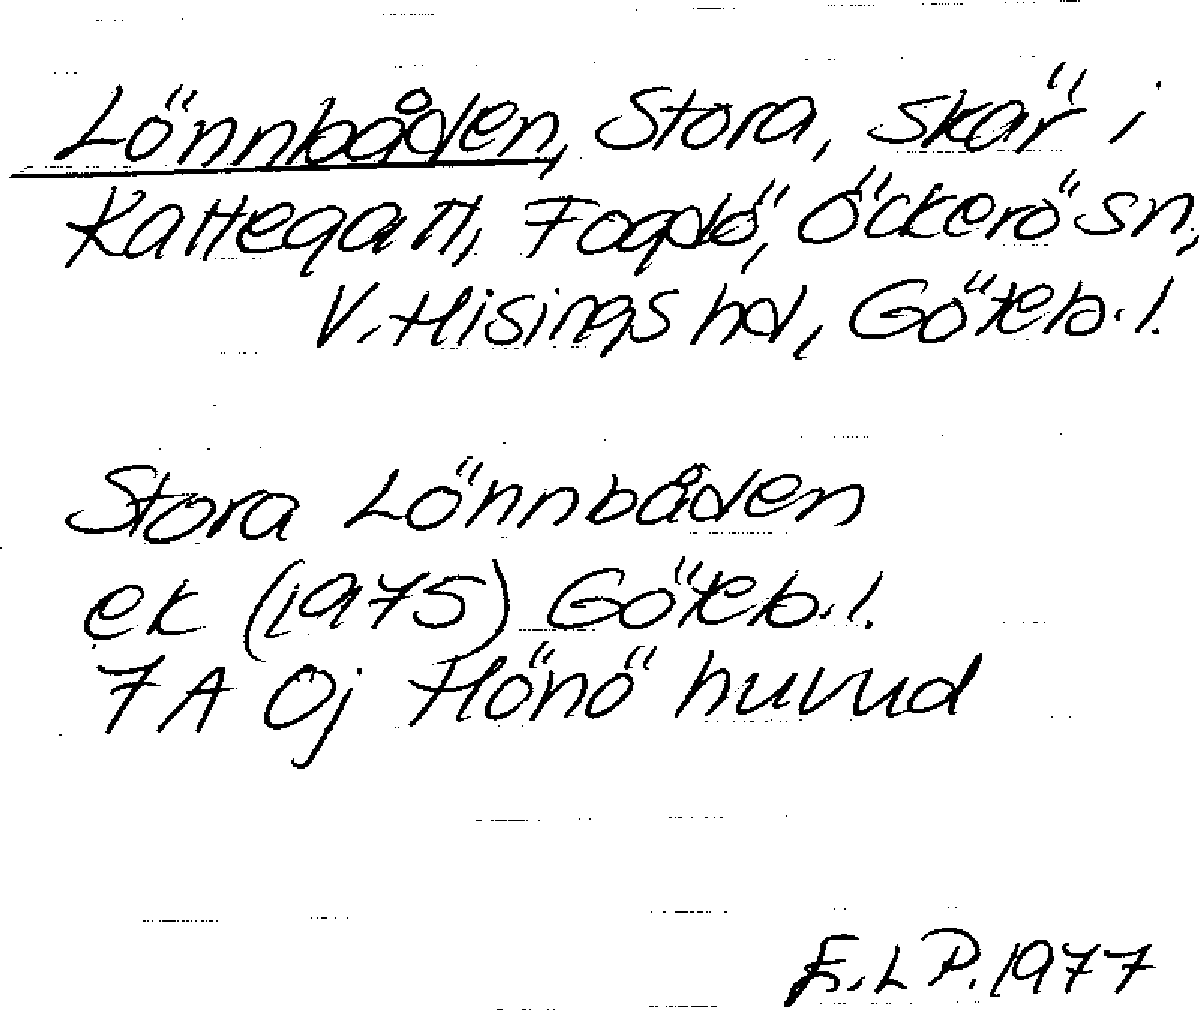 Lönnbåden, Stora, skär i
Kattegatt, Fogdö, Öckerö sn,
V. Hisings hd, Göteb.l.
Stora Lönnbåden
ek (1975) Göteb.l.
7 A Öj Hönö huvud
E.L P. 1977